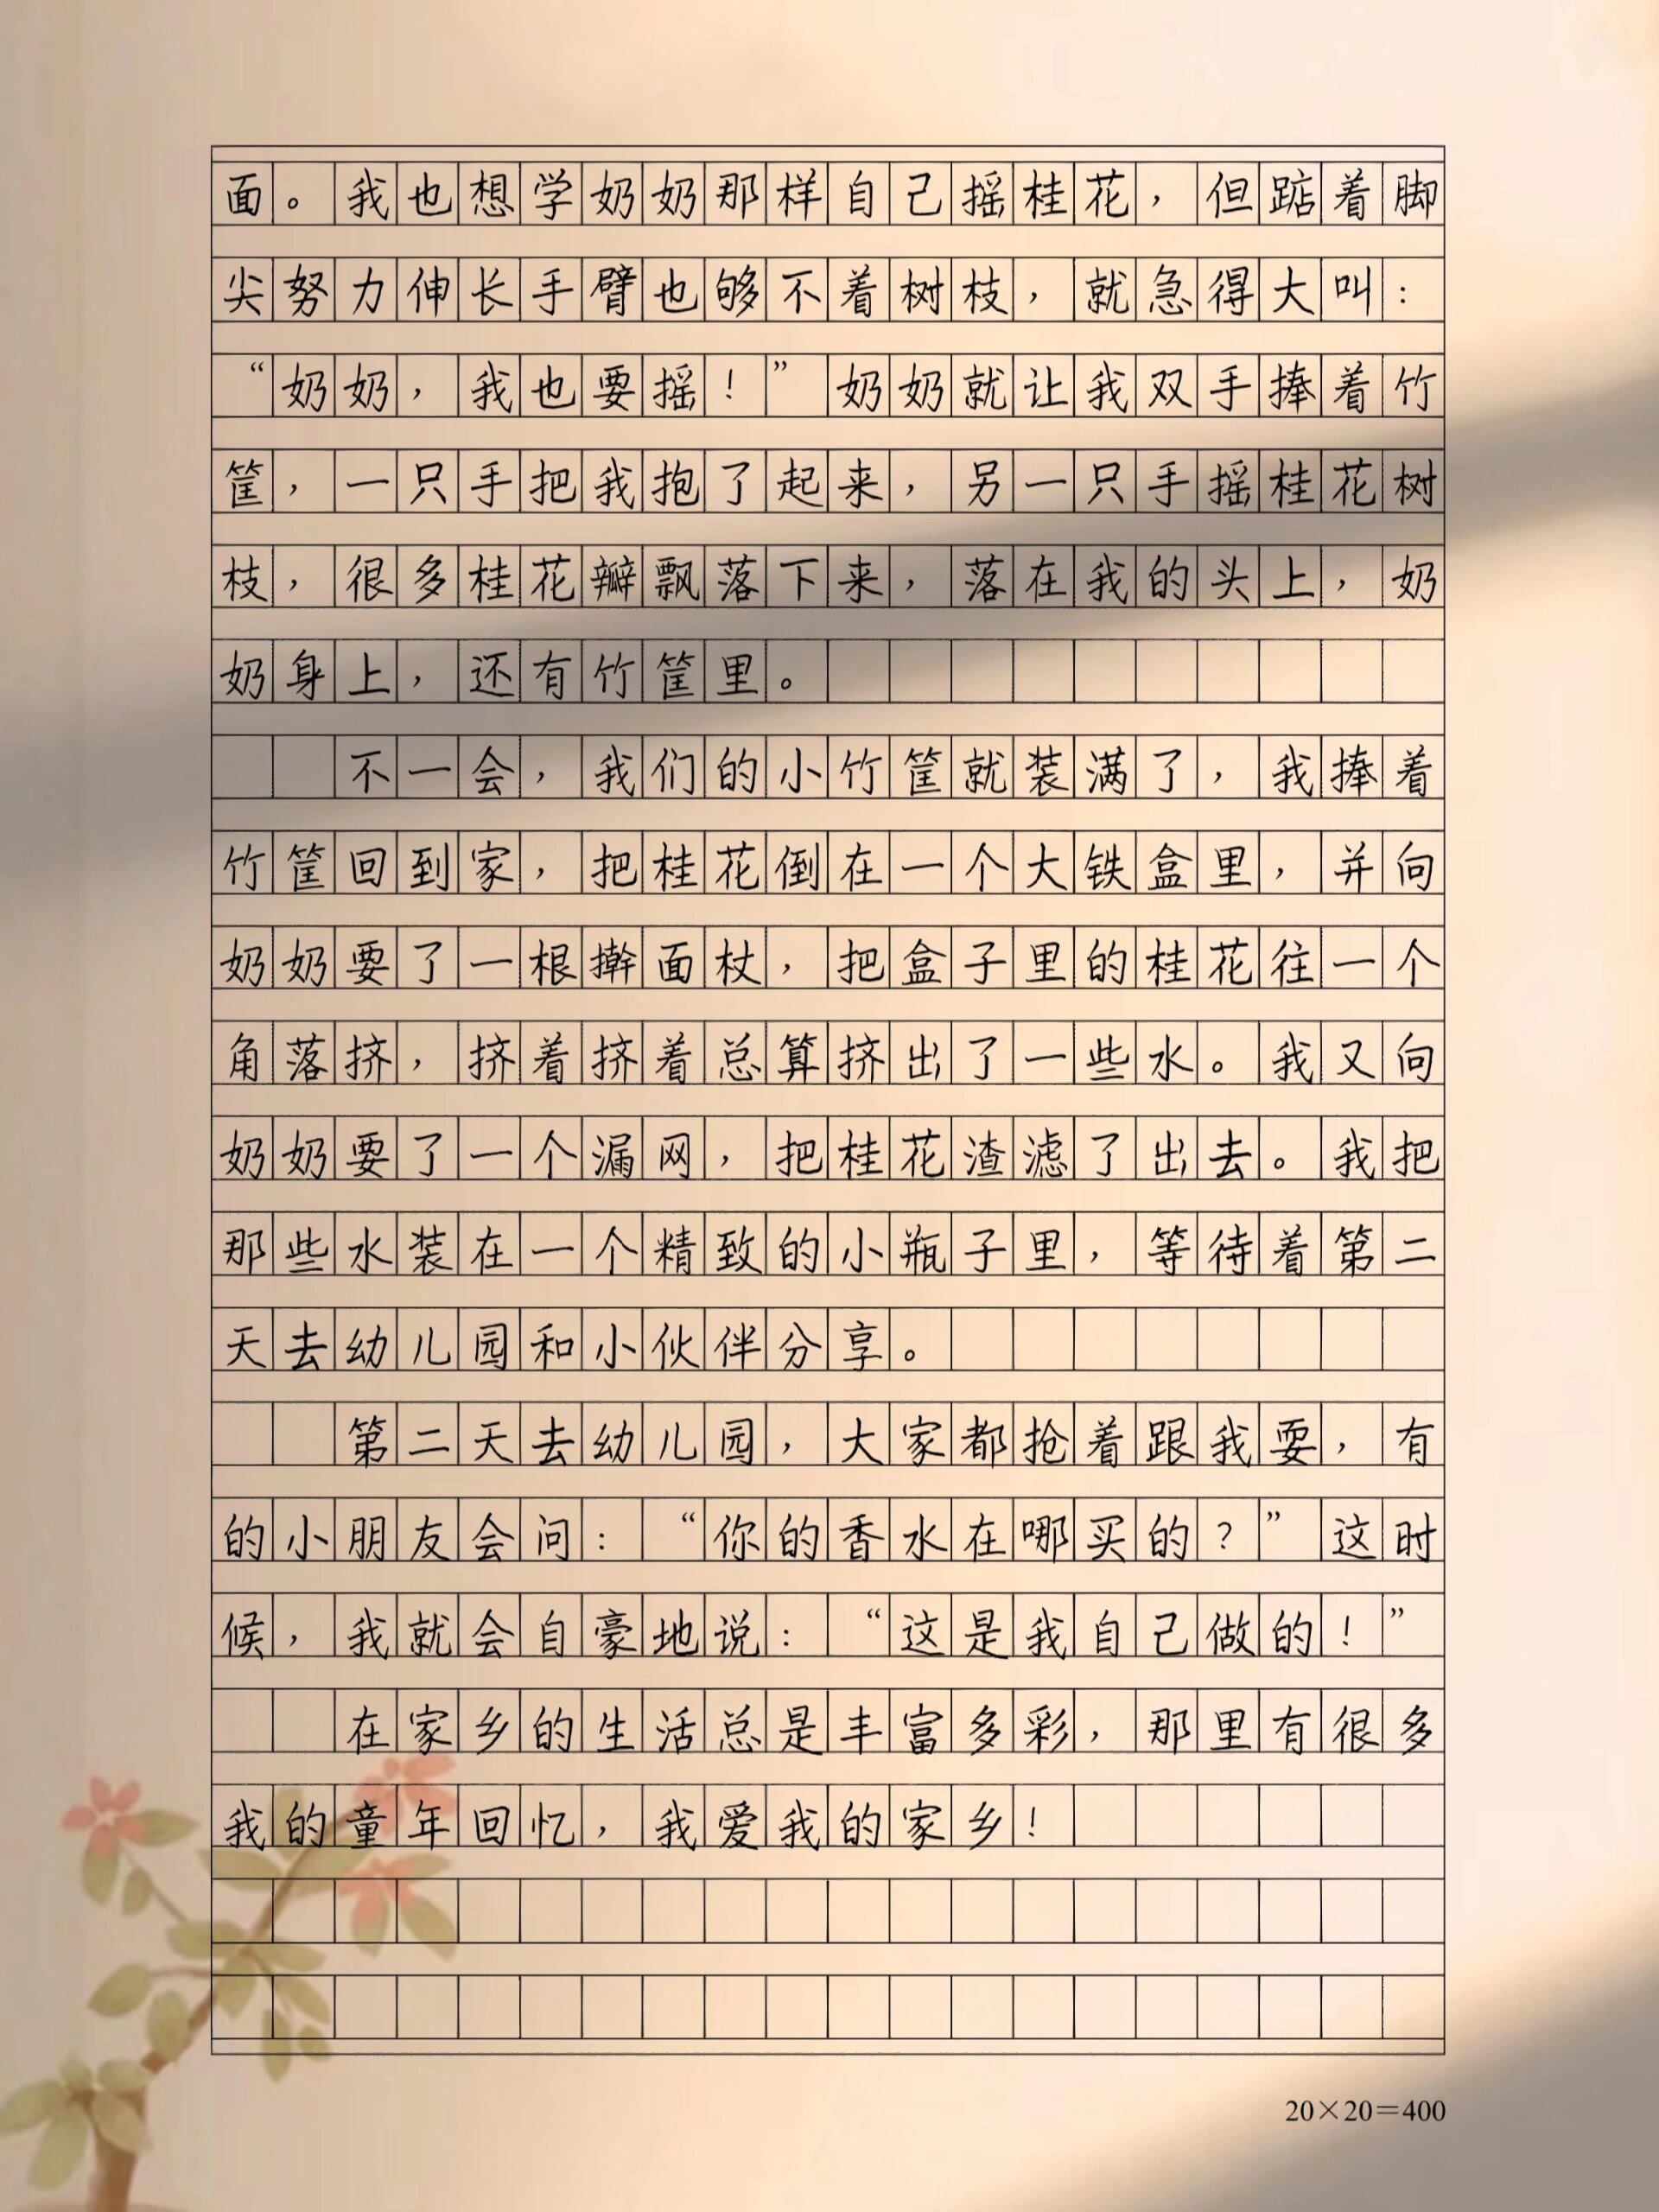 面。我也想学奶奶那样自己摇桂花，但踮着脚
尖努力伸长手臂也够不着树枝，就急得大叫：
“奶奶，我也要摇！”奶奶就让我双手捧着竹
筐，一只手把我抱了起来，另一只手摇桂花树
枝，很多桂花瓣飘落下来，落在我的头上，奶
奶身上，还有竹筐里。
不一会，我们的小竹筐就装满了，我捧着
竹筐回到家，把桂花倒在一个大铁盒里，并向
奶奶要了一根擀面杖，把盒子里的桂花往一个
角落挤，挤着挤着总算挤出了一些水。我又向
奶奶要了一个漏网，把桂花渣滤了出去。我把
那些水装在一个精致的小瓶子里，等待着第二
天去幼儿园和小伙伴分享。
第二天去幼儿园，大家都抢着跟我耍，有
的小朋友会问：“你的香水在哪买的？”这时
候，我就会自豪地说：“这是我自己做的！”
在家乡的生活总是丰富多彩，那里有很多
我的童年回忆，我爱我的家乡！
20×20=400